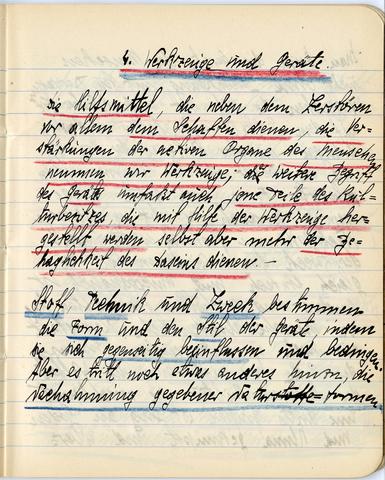 4. Werkzeuge und Geräte.
Die Hilfsmittel, die neben dem Zerstören
vor allem dem Schaffen dienen, die Ver-
stärkungen der activen Organe des Menschen
nennen wir Werkzeuge; der weitere Begriff
des Geräts umfaßt auch jene Teile des Kul-
turbesitzes, die mit Hilfe der Werkzeuge her-
gestellt werden selbst aber mehr der Be-
haglichkeit des Daseins dienen. —
Stoff, Technik und Zweck bestimmen
die Form und den Stil der Geräte indem
sie sich gegenseitig beeinflussen und bedingen.
Aber es tritt noch etwas anderes hinzu, die
Nachahmung gegebener Naturstoffe-formen